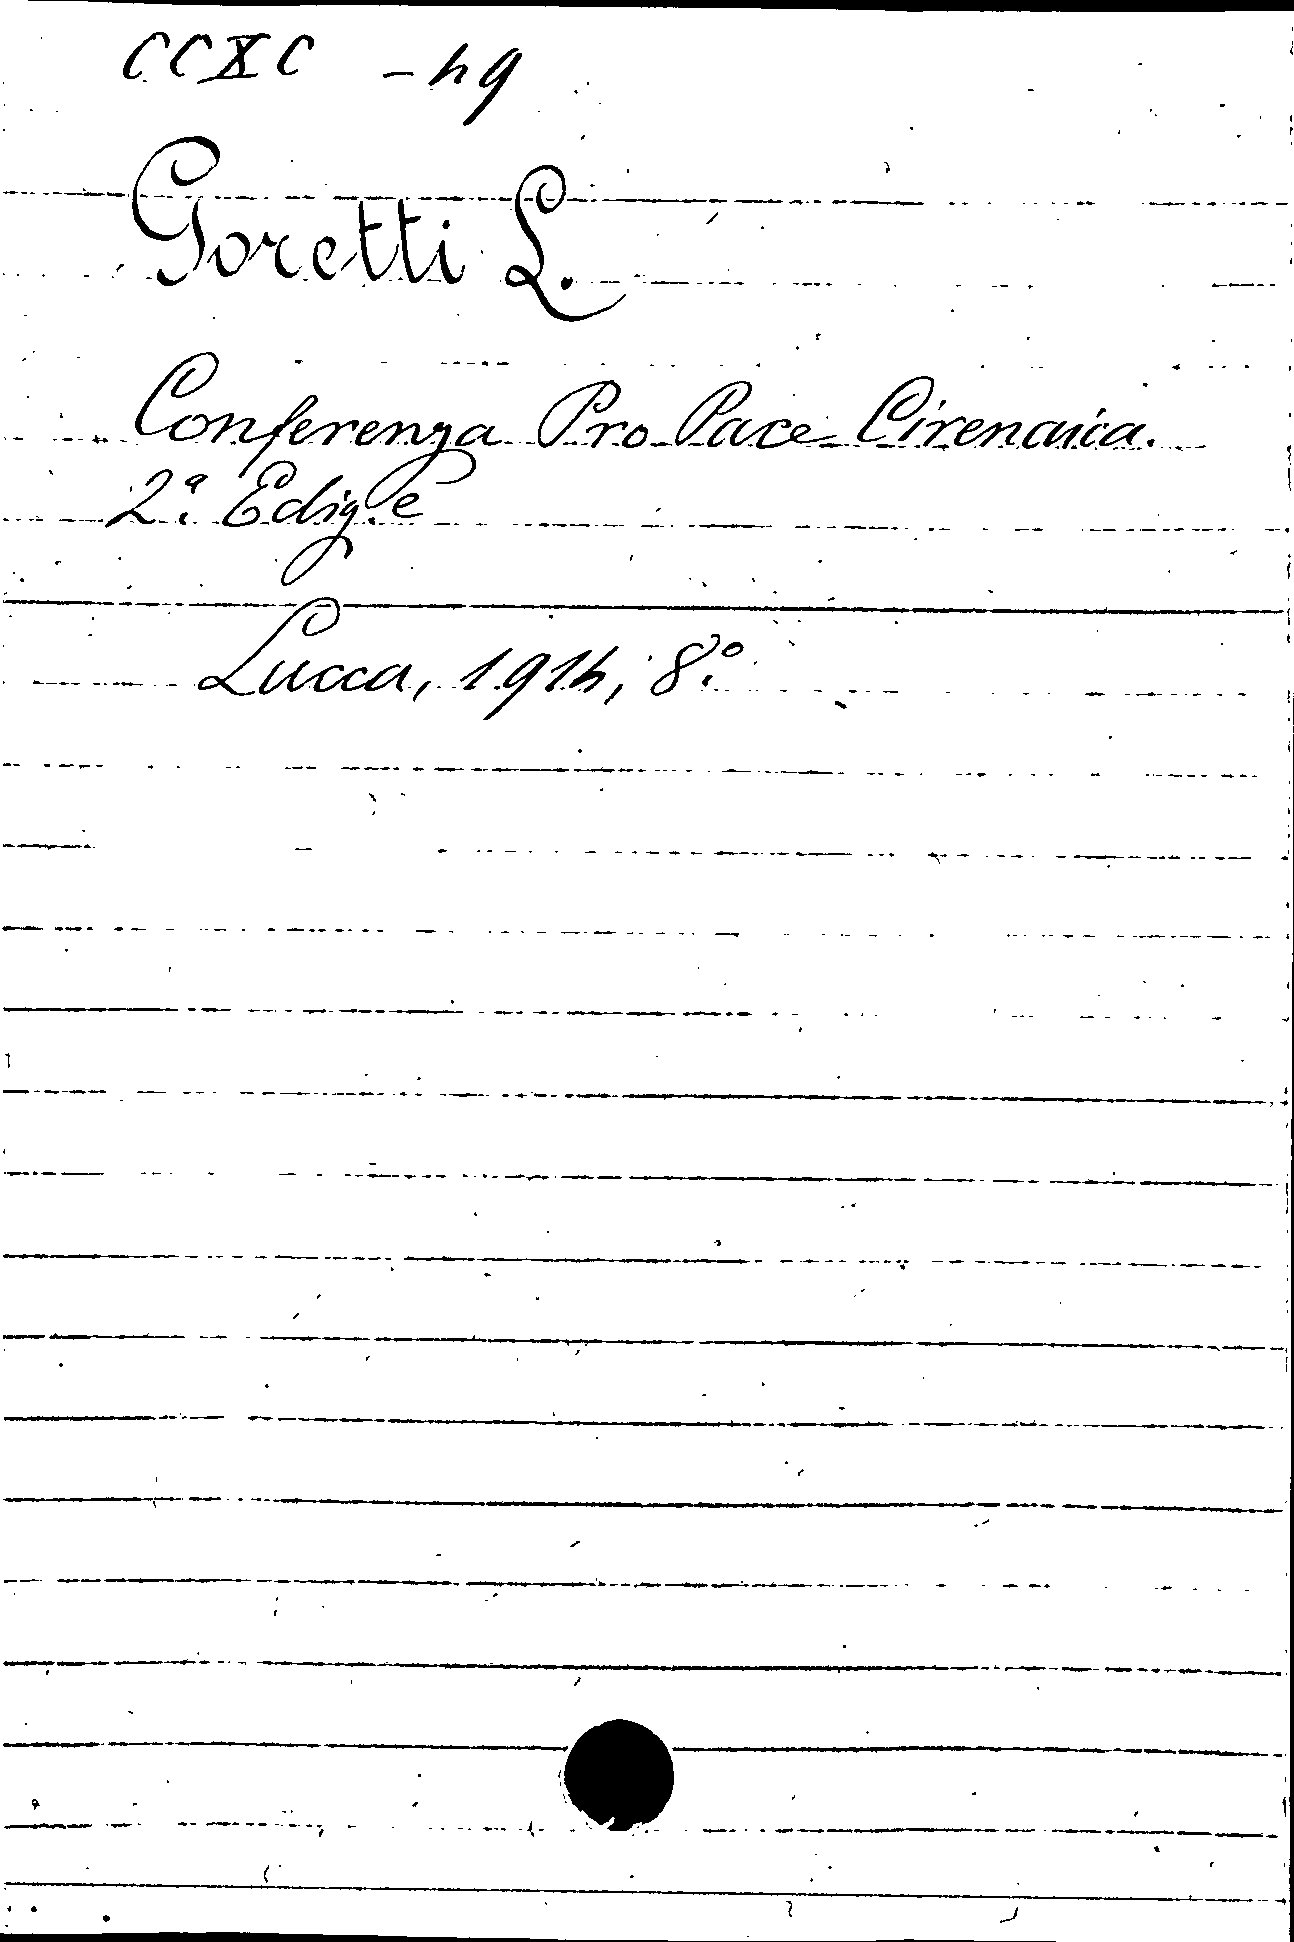 CCXC - 49
Goretti L.
Conferenza Pro Pace Cirenaica.
2ª. Ediz.e
Lucca, 1914, 8.º